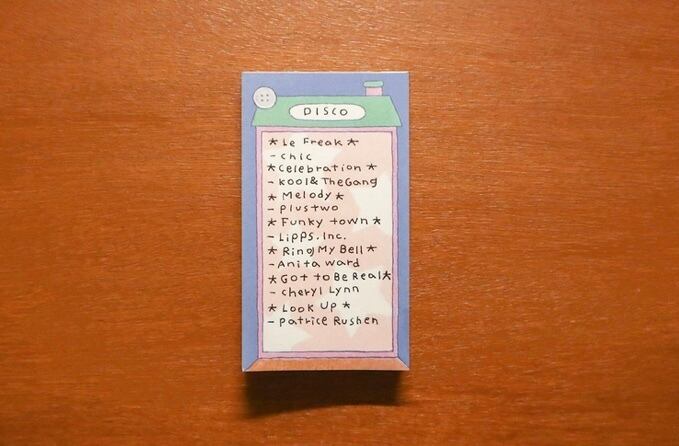 DISCO
*Le Freak*
- chic
*celebration*
- Kool& TheGang
* Melody *
- Plustwo
* Funky town *
- Lipps.Inc.
* Ring My Bell *
- Anita ward
*Got to Be Real*
- cheryl Lynn
* Look Up *
- Patrice Rushen